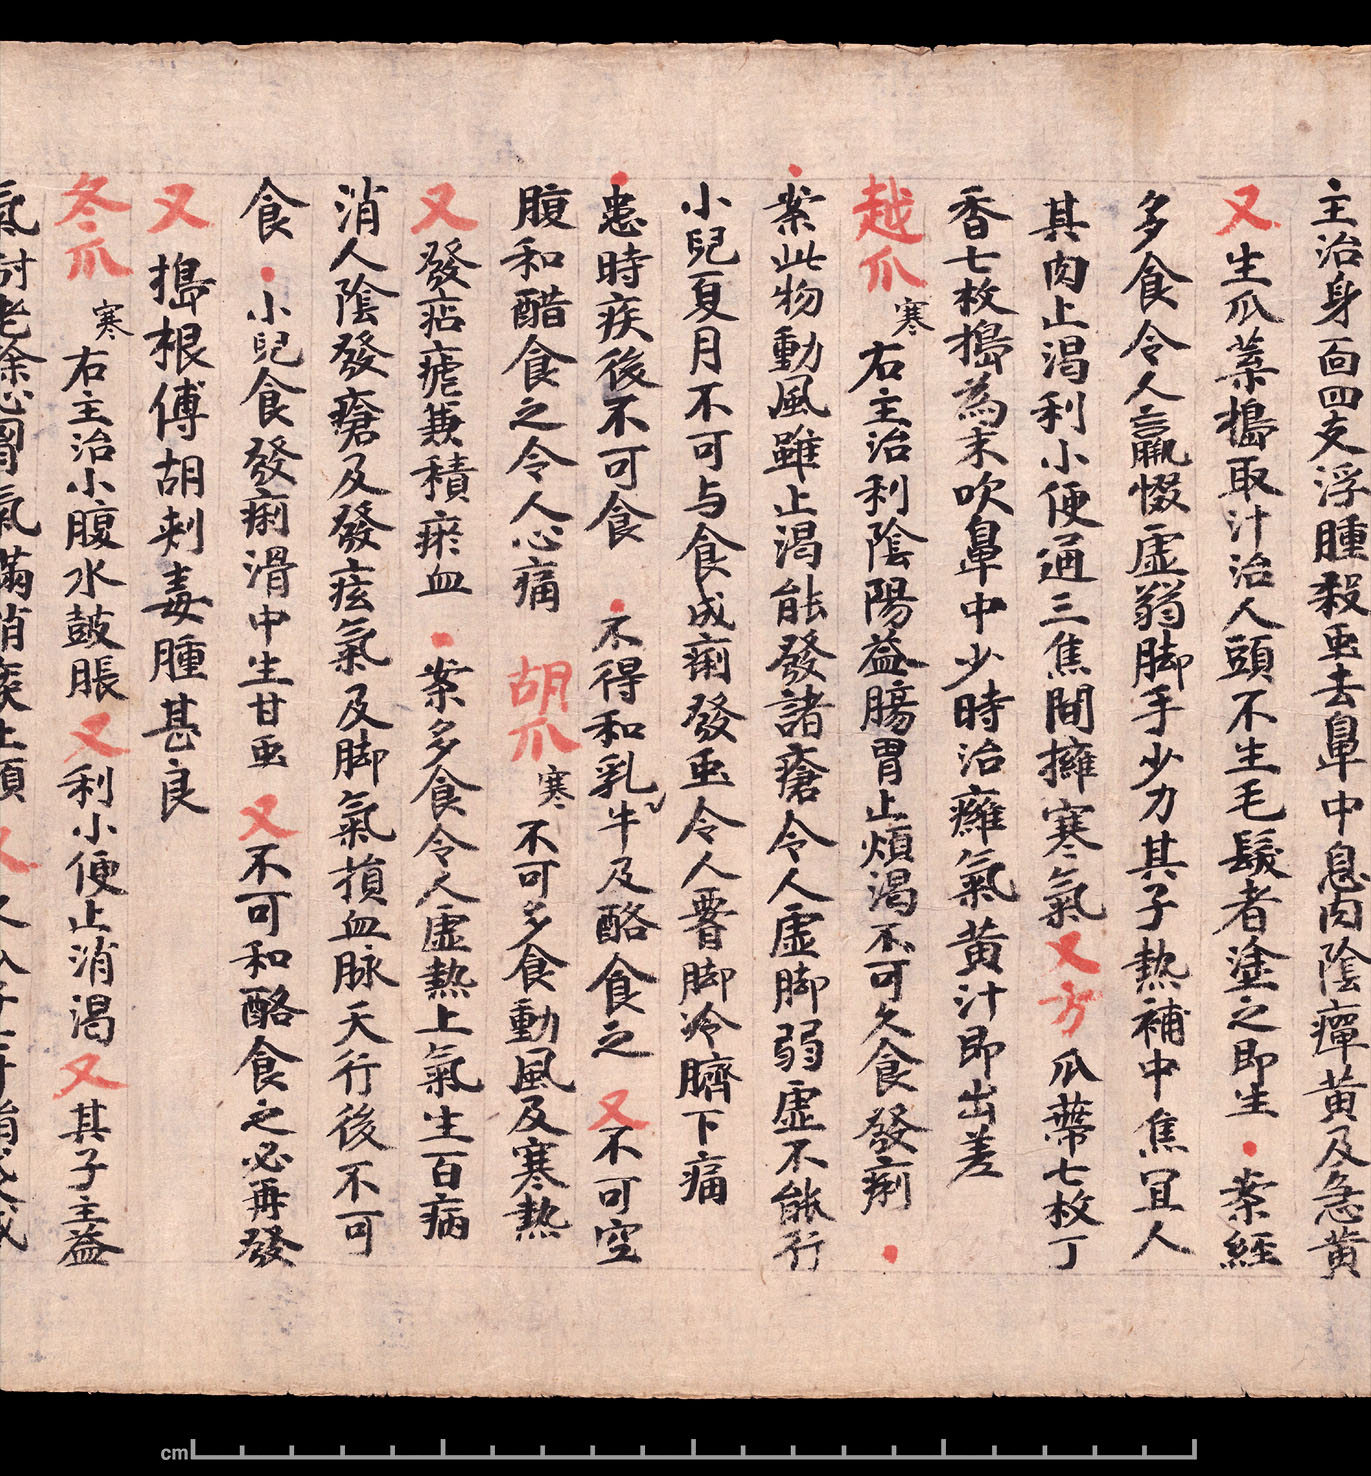 主治身面四支浮腫殺虫去鼻中息肉陰癉黄及急黄
又生瓜葉搗取汁治人頭不生毛髮者塗之即生 案経
多食令人羸惙虚弱脚手少力其子熱補中焦冝人
其肉止渇利小便通三焦間擁寒氣又方瓜蔕七枚丁
香七枚搗為末吹鼻中少時治癰氣黄汁即出差
越瓜寒右主治利陰陽益腸胃止煩渇不可久食發痢
案此物動風雖止渇能發諸瘡令人虚脚弱虚不能行
小兒夏月不可与食成痢發虫令人瞢脚冷臍下痛
患時疾後不可食 不得和乳牛及酪食之又不可空
腹和醋食之令人心痛 胡瓜寒不可多食動風及寒熱
又發痁瘧兼積瘀血 案多食令人虚熱上氣生百病
消人陰發瘡及發痃氣及脚氣損血脉天行後不可
食 小兒食發痢滑中生甘虫 又不可和酪食之必再發
又搗根傅胡刺毒腫甚良
冬瓜寒右主治小腹水鼓脹又利小便止消渇又其子主益